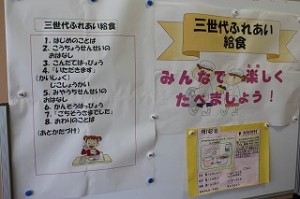 三世代ふれあい給食
1. はじめのことば
2. こうちょうせんせいの
おはなし
3. こんだてはっぴょう
4. 「いただきます」
(かいしょく)
じこしょうかい
5. みやうちせんせいの
おはなし
6. かんそうはっぴょう
7. 「ごちそうさまでした」
8. おわりのことば
(あとかたづけ)
三世代ふれあい
給食
みんなで楽しく
たべましょう！